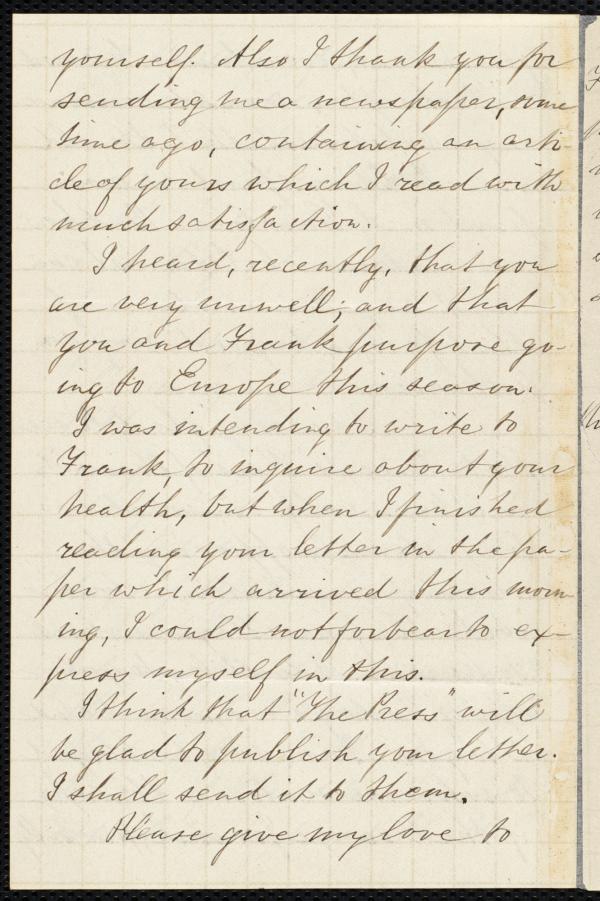 yourself. Also I thank you for
sending me a newspaper, some
time ago, containing an arti-
cle of yours which I read with
much satisfaction.
I heard, recently, that you
are very unwell; and that
you and Frank purpose go-
ing to Europe this season.
I was intending to write to
Frank, to inquire about your
health, but when I finished
reading your letter in the pa-
per which arrived this morn-
ing, I could not forbear to ex-
press myself in this.
I think that "The Press" will
be glad to publish your letter.
I shall send it to them.
Please give my love to